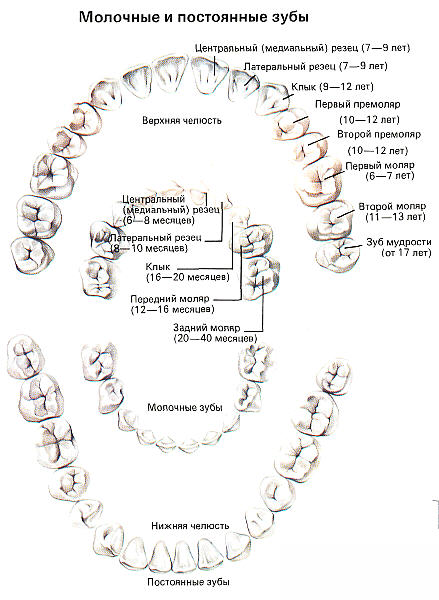 Молочные и постоянные зубы
Центральный (медиальный) резец (7—9 лет)
Латеральный резец (7—9 лет)
Клык (9—12 лет)
Первый премоляр
(10—12 лет)
Верхняя челюсть
Второй премоляр
(10—12 лет)
Первый моляр
(6—7 лет)
Второй моляр
(11—13 лет)
Зуб мудрости
(от 17 лет)
Центральный
(медиальный) резец
(6—8 месяцев)
Латеральный резец
(8—10 месяцев)
Клык
(16—20 месяцев)
Передний моляр
(12—16 месяцев)
Задний моляр
(20—40 месяцев)
Молочные зубы
Нижняя челюсть
Постоянные зубы